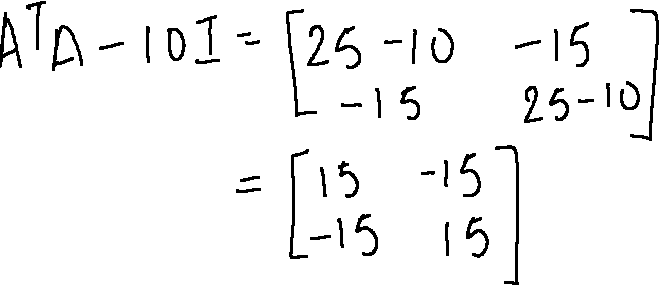 A^T A - 10I = [25-10 -15
-15 25-10]
= [15 -15
-15 15]